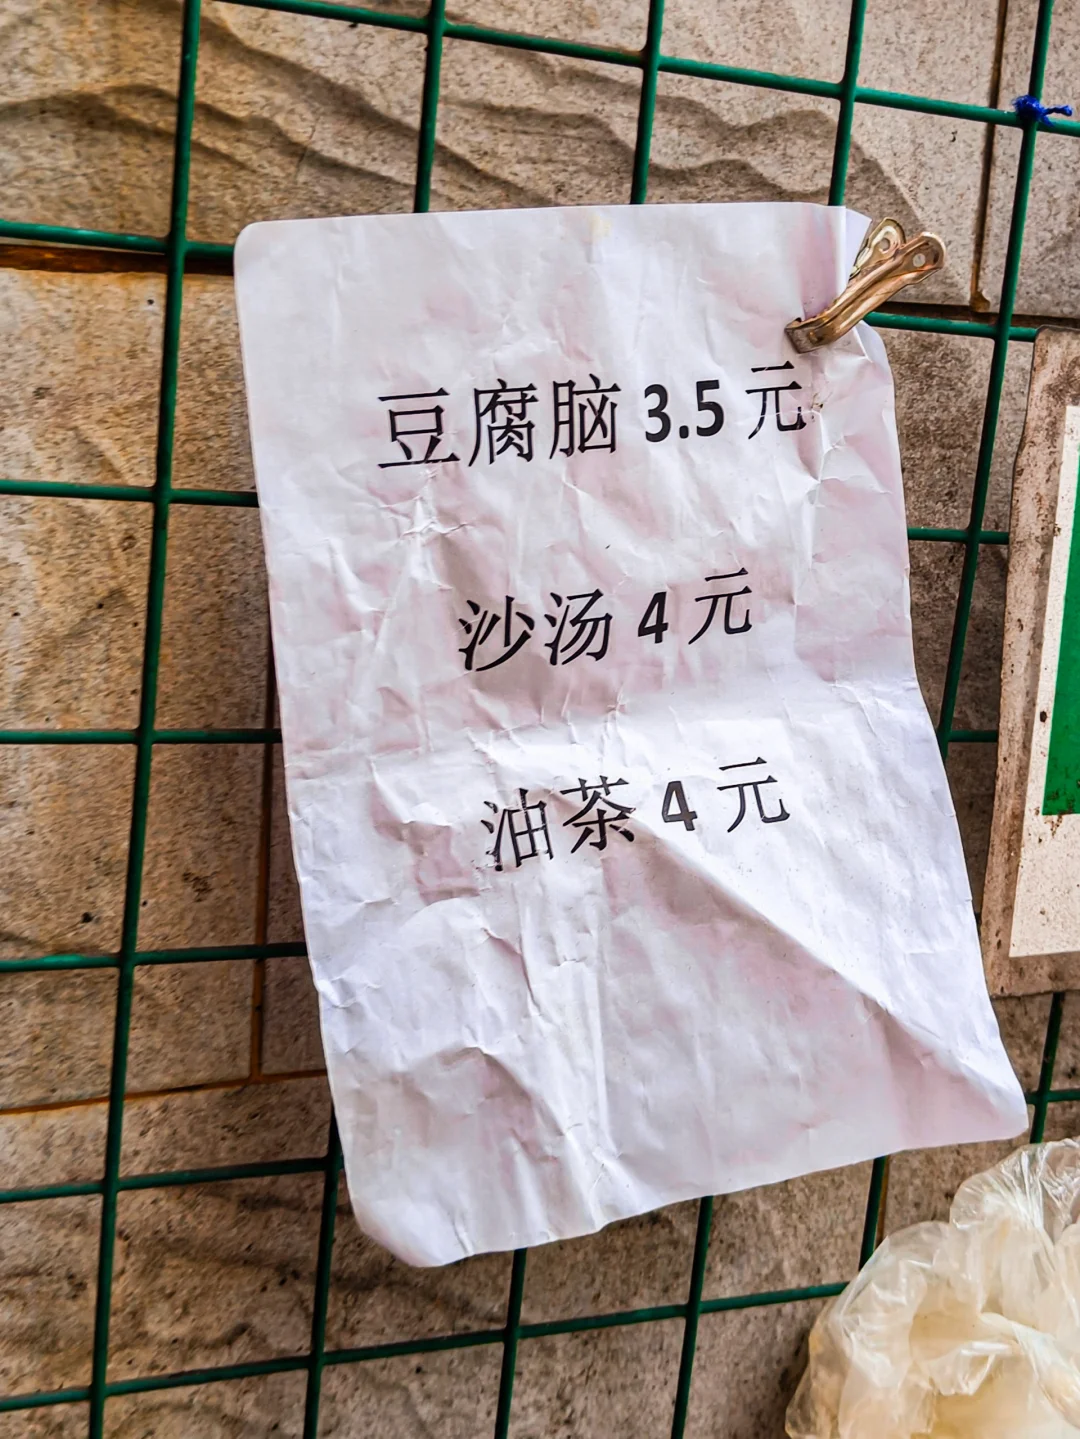 豆腐脑 3.5 元
沙汤 4 元
油茶 4 元